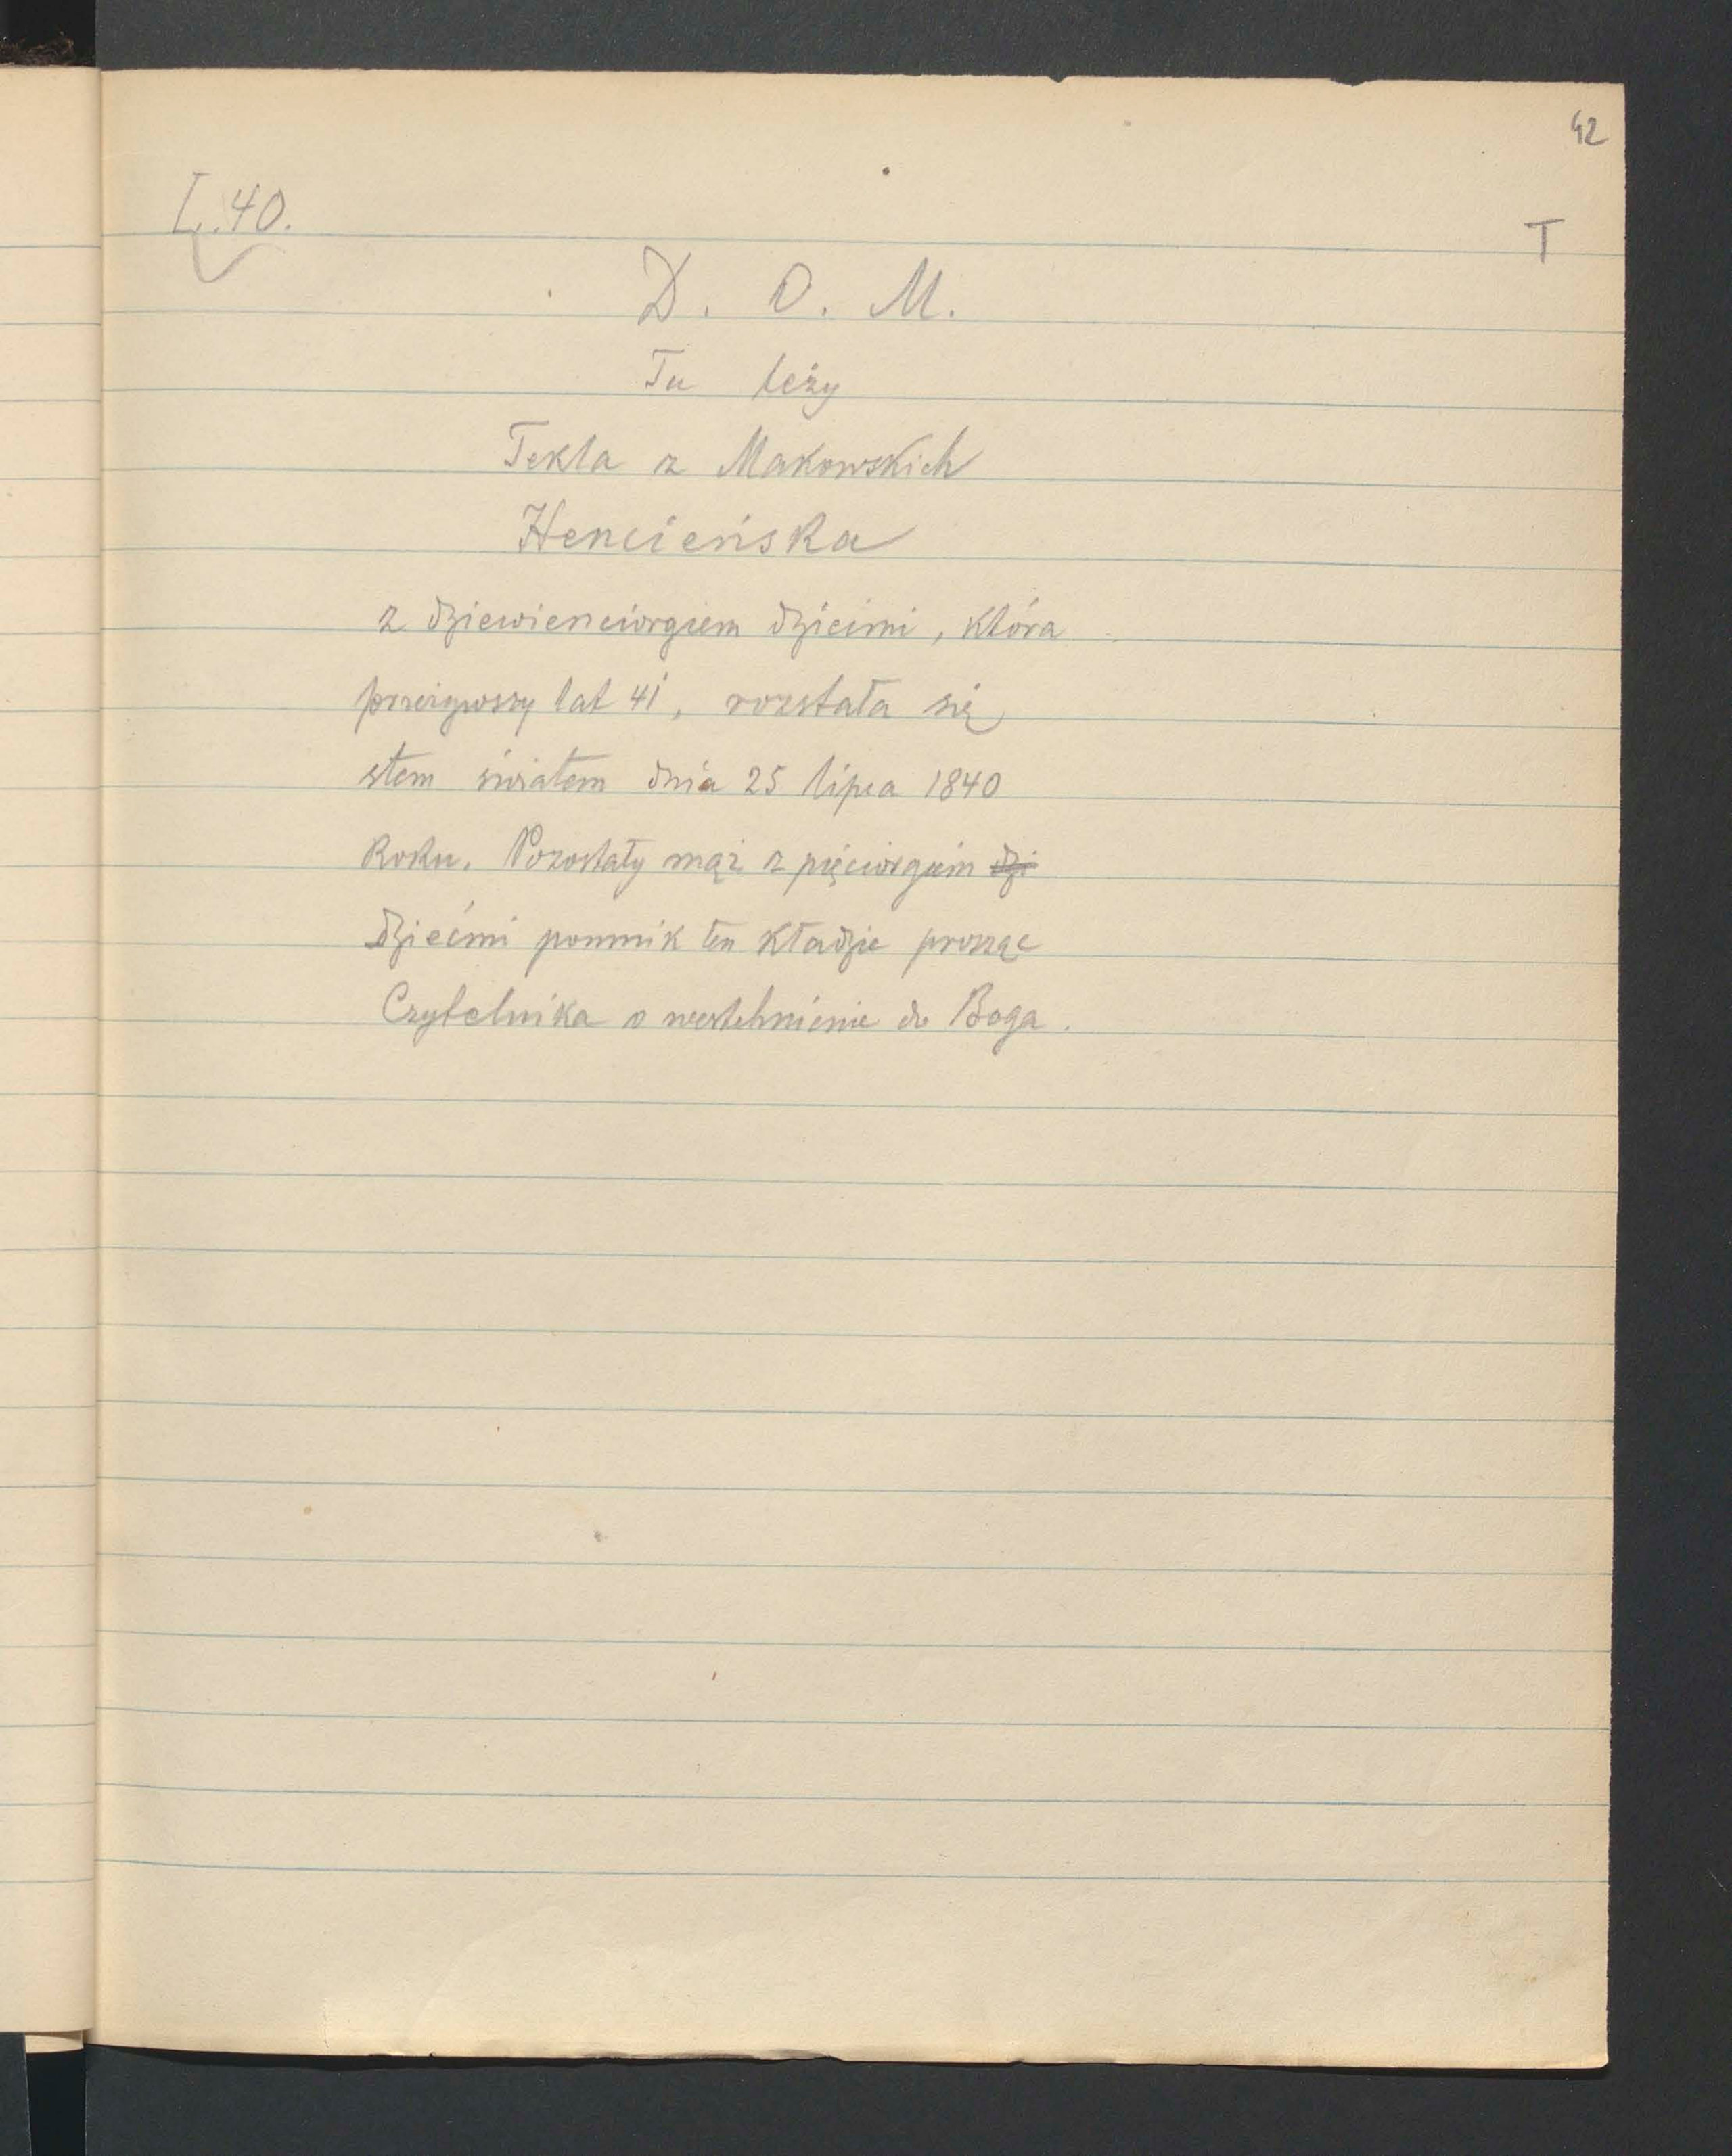 42
L. 40.
T
D. O. M.
Tu leży
Tekla z Makowskich
Hencieńska
z dziewienciorgiem dziećmi, która
przeżywszy lat 41, rozstała się
stem światem dnia 25 lipca 1840
Roku. Pozostały mąż z pięciorgiem dzi
dziećmi pomnik ten kładzie prosząc
Czytelnika o westchnienie do Boga.